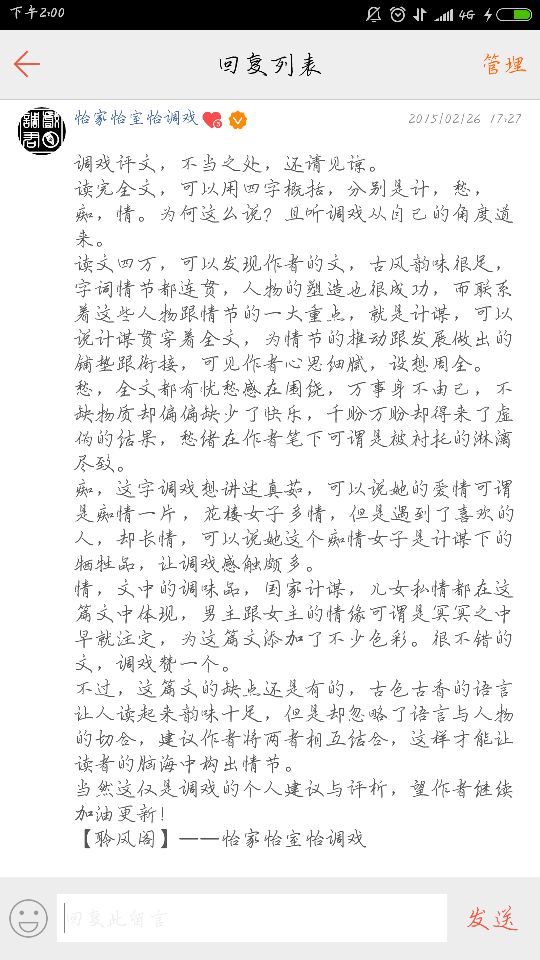 下午2:00
4G
回复列表
管理
怡家怡室怡调戏
2015/02/26 17:27
调戏评文，不当之处，还请见谅。
读完全文，可以用四字概括，分别是计，愁，
痴，情。为何这么说？且听调戏从自己的角度道
来。
读文四万，可以发现作者的文，古风韵味很足，
字词情节都连贯，人物的塑造也很成功，而联系
着这些人物跟情节的一大重点，就是计谋，可以
说计谋贯穿着全文，为情节的推动跟发展做出的
铺垫跟衔接，可见作者心思细腻，设想周全。
愁，全文都有忧愁感在围绕，万事身不由己，不
缺物质却偏偏缺少了快乐，千盼万盼却得来了虚
伪的结果，愁绪在作者笔下可谓是被衬托的淋漓
尽致。
痴，这字调戏想讲述真茹，可以说她的爱情可谓
是痴情一片，花楼女子多情，但是遇到了喜欢的
人，却长情，可以说她这个痴情女子是计谋下的
牺牲品，让调戏感触颇多。
情，文中的调味品，国家计谋，儿女私情都在这
篇文中体现，男主跟女主的情缘可谓是冥冥之中
早就注定，为这篇文添加了不少色彩。很不错的
文，调戏赞一个。
不过，这篇文的缺点还是有的，古色古香的语言
让人读起来韵味十足，但是却忽略了语言与人物
的切合，建议作者将两者相互结合，这样才能让
读者的脑海中构出情节。
当然这仅是调戏的个人建议与评析，望作者继续
加油更新！
【聆风阁】——怡家怡室怡调戏
回复此留言
发送